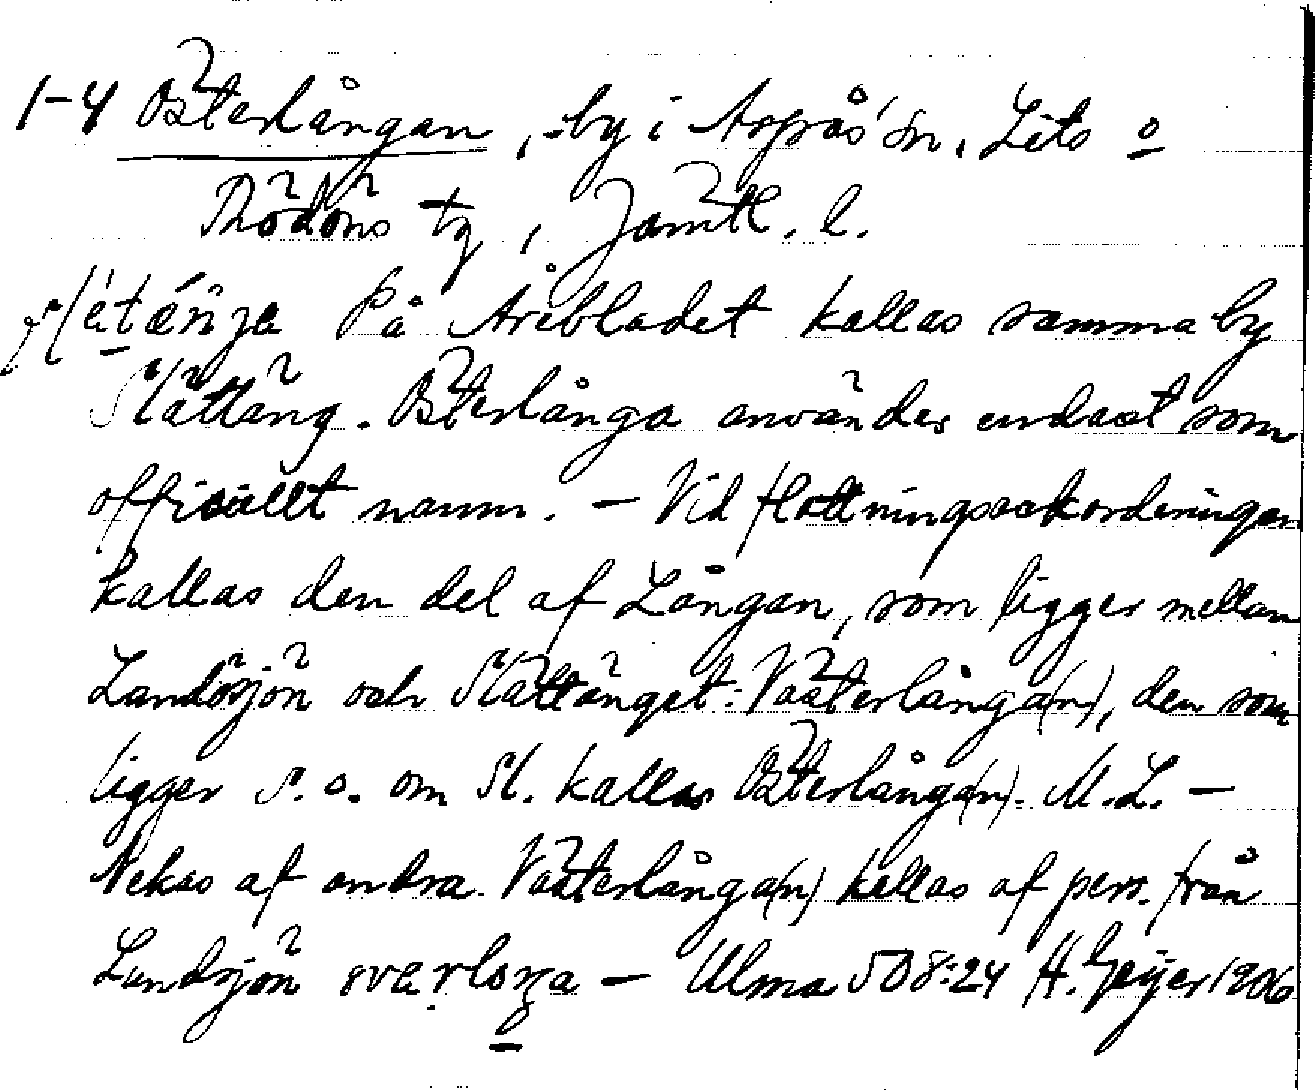 1-4 Österlångan, -by i Aspås sn, Lits o
Rödöns tg, Jämtl. l.
På Årebladet kallas samma by
Slättäng. Österlånga användes endast som
officiellt namn. - Vid flottningsackorderingen
kallas den del af Långan, som ligger mellan
Landösjön och Slättänget: Västerlånga(n), den som
ligger s. o. om Sl. kallas Österlånga(n). M.L. -
Nekas af andra. Västerlånga(n) kallas af pers. från
Landsjön - Ulma 508:24 H. Geijer 1906